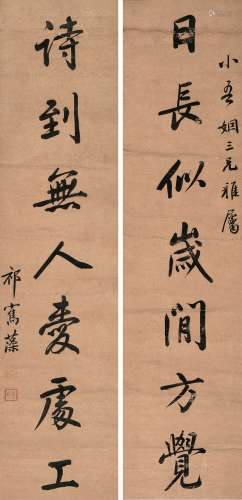 小吾姻三兄雅屬
日長似歲閒方覺
詩到無人愛處工
祁寯藻